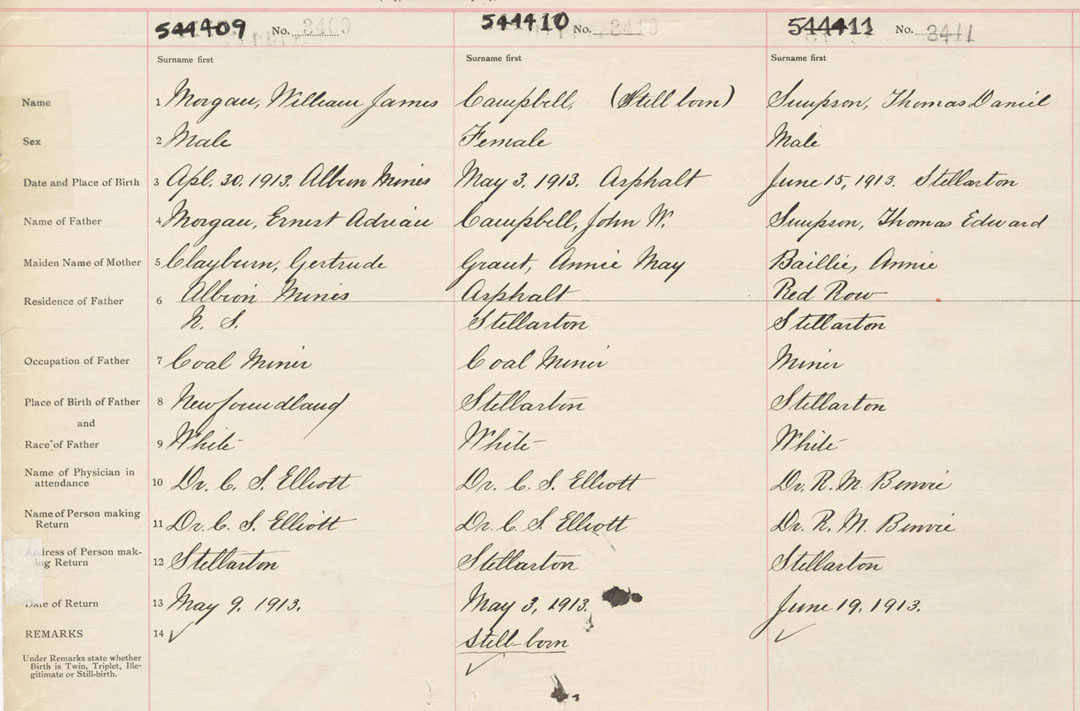 544409 No. 3409 544410 No. 3410 544411 No. 3411
Surname first Surname first Surname first
Name 1 Morgan, William James Campbell, (Still born) Simpson, Thomas Daniel
Sex 2 Male Female Male
Date and Place of Birth 3 Apl. 30, 1913. Albion Mines May 3, 1913. Asphalt June 15, 1913. Stellarton
Name of Father 4 Morgan, Ernest Adrian Campbell, John W. Simpson, Thomas Edward
Maiden Name of Mother 5 Clayburn, Gertrude Grant, Annie May Baillie, Annie
Residence of Father 6 Albion Mines Asphalt Red Row
N. S. Stellarton Stellarton
Occupation of Father 7 Coal Miner Coal Miner Miner
Place of Birth of Father 8 Newfoundland Stellarton Stellarton
and
Race of Father 9 White White White
Name of Physician in
attendance 10 Dr. C. S. Elliott Dr. C. S. Elliott Dr. R. M. Benvie
Name of Person making
Return 11 Dr. C. S. Elliott Dr. C. S. Elliott Dr. R. M. Benvie
Address of Person mak-
ing Return 12 Stellarton Stellarton Stellarton
Date of Return 13 May 9, 1913. May 3, 1913. June 19, 1913.
REMARKS 14 Still-born
Under Remarks state whether
Birth is Twin, Triplet, Ille-
gitimate or Still-birth.